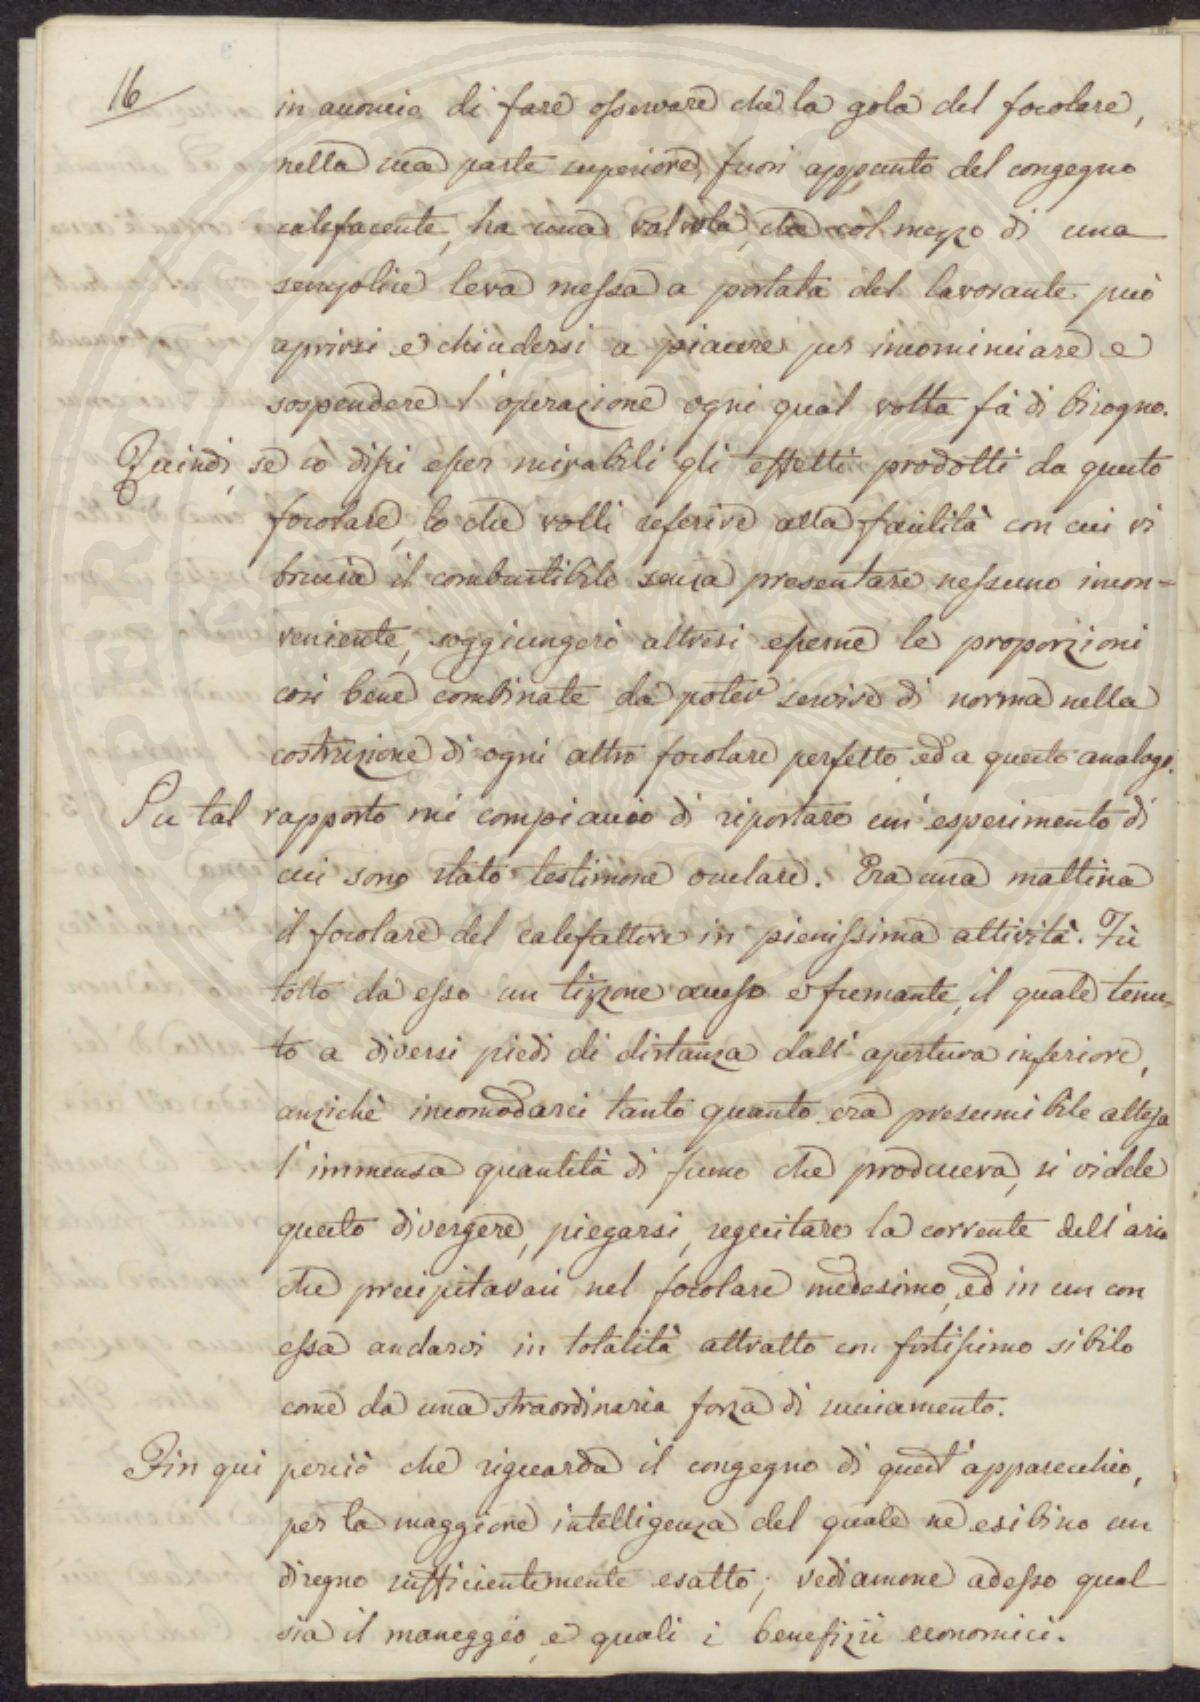 16
in acconcio di fare osservare che la gola del focolare,
nella sua parte superiore, fuori appunto del congegno
calefacente, ha una valvola, che col mezzo di una
semplice leva messa a portata del lavorante può
aprirsi e chiudersi a piacere per incominciare e
sospendere l'operazione ogni qual volta fà di bisogno.
Quindi, se io dissi esser mirabili gli effetti prodotti da questo
focolare, lo che volli referire alla facilità con cui vi
brucia il combustibile senza presentare nessuno incon=
veniente, soggiungerò altresi esserne le proporzioni
cosi bene combinate da poter servire di norma nella
costruzione di ogni altro focolare perfetto ed a questo analogo.
Su tal rapporto mi compiaccio di riportare un'esperimento di
cui sono stato testimone oculare. Era una mattina
il focolare del calefattore in pienissima attività. Fù
tolto da esso un tizzone acceso e fumante, il quale tenu-
to a diversi piedi di distanza dall'apertura inferiore,
anzichè incomodarci tanto quanto era presumibile attesa
l'immensa quantità di fumo che produceva, si vidde
questo divergere, piegarsi, seguitare la corrente dell'aria
che precipitavasi nel focolare medesimo, ed in un con
essa andarvi in totalità attratto con fortissimo sibilo
come da una straordinaria forza di succiamento.
Fin qui perciò che riguarda il congegno di quest'apparecchio,
per la maggiore intelligenza del quale ne esibisco un
disegno sufficientemente esatto; vediamone adesso qual
sia il maneggio, e quali i benefizii economici.